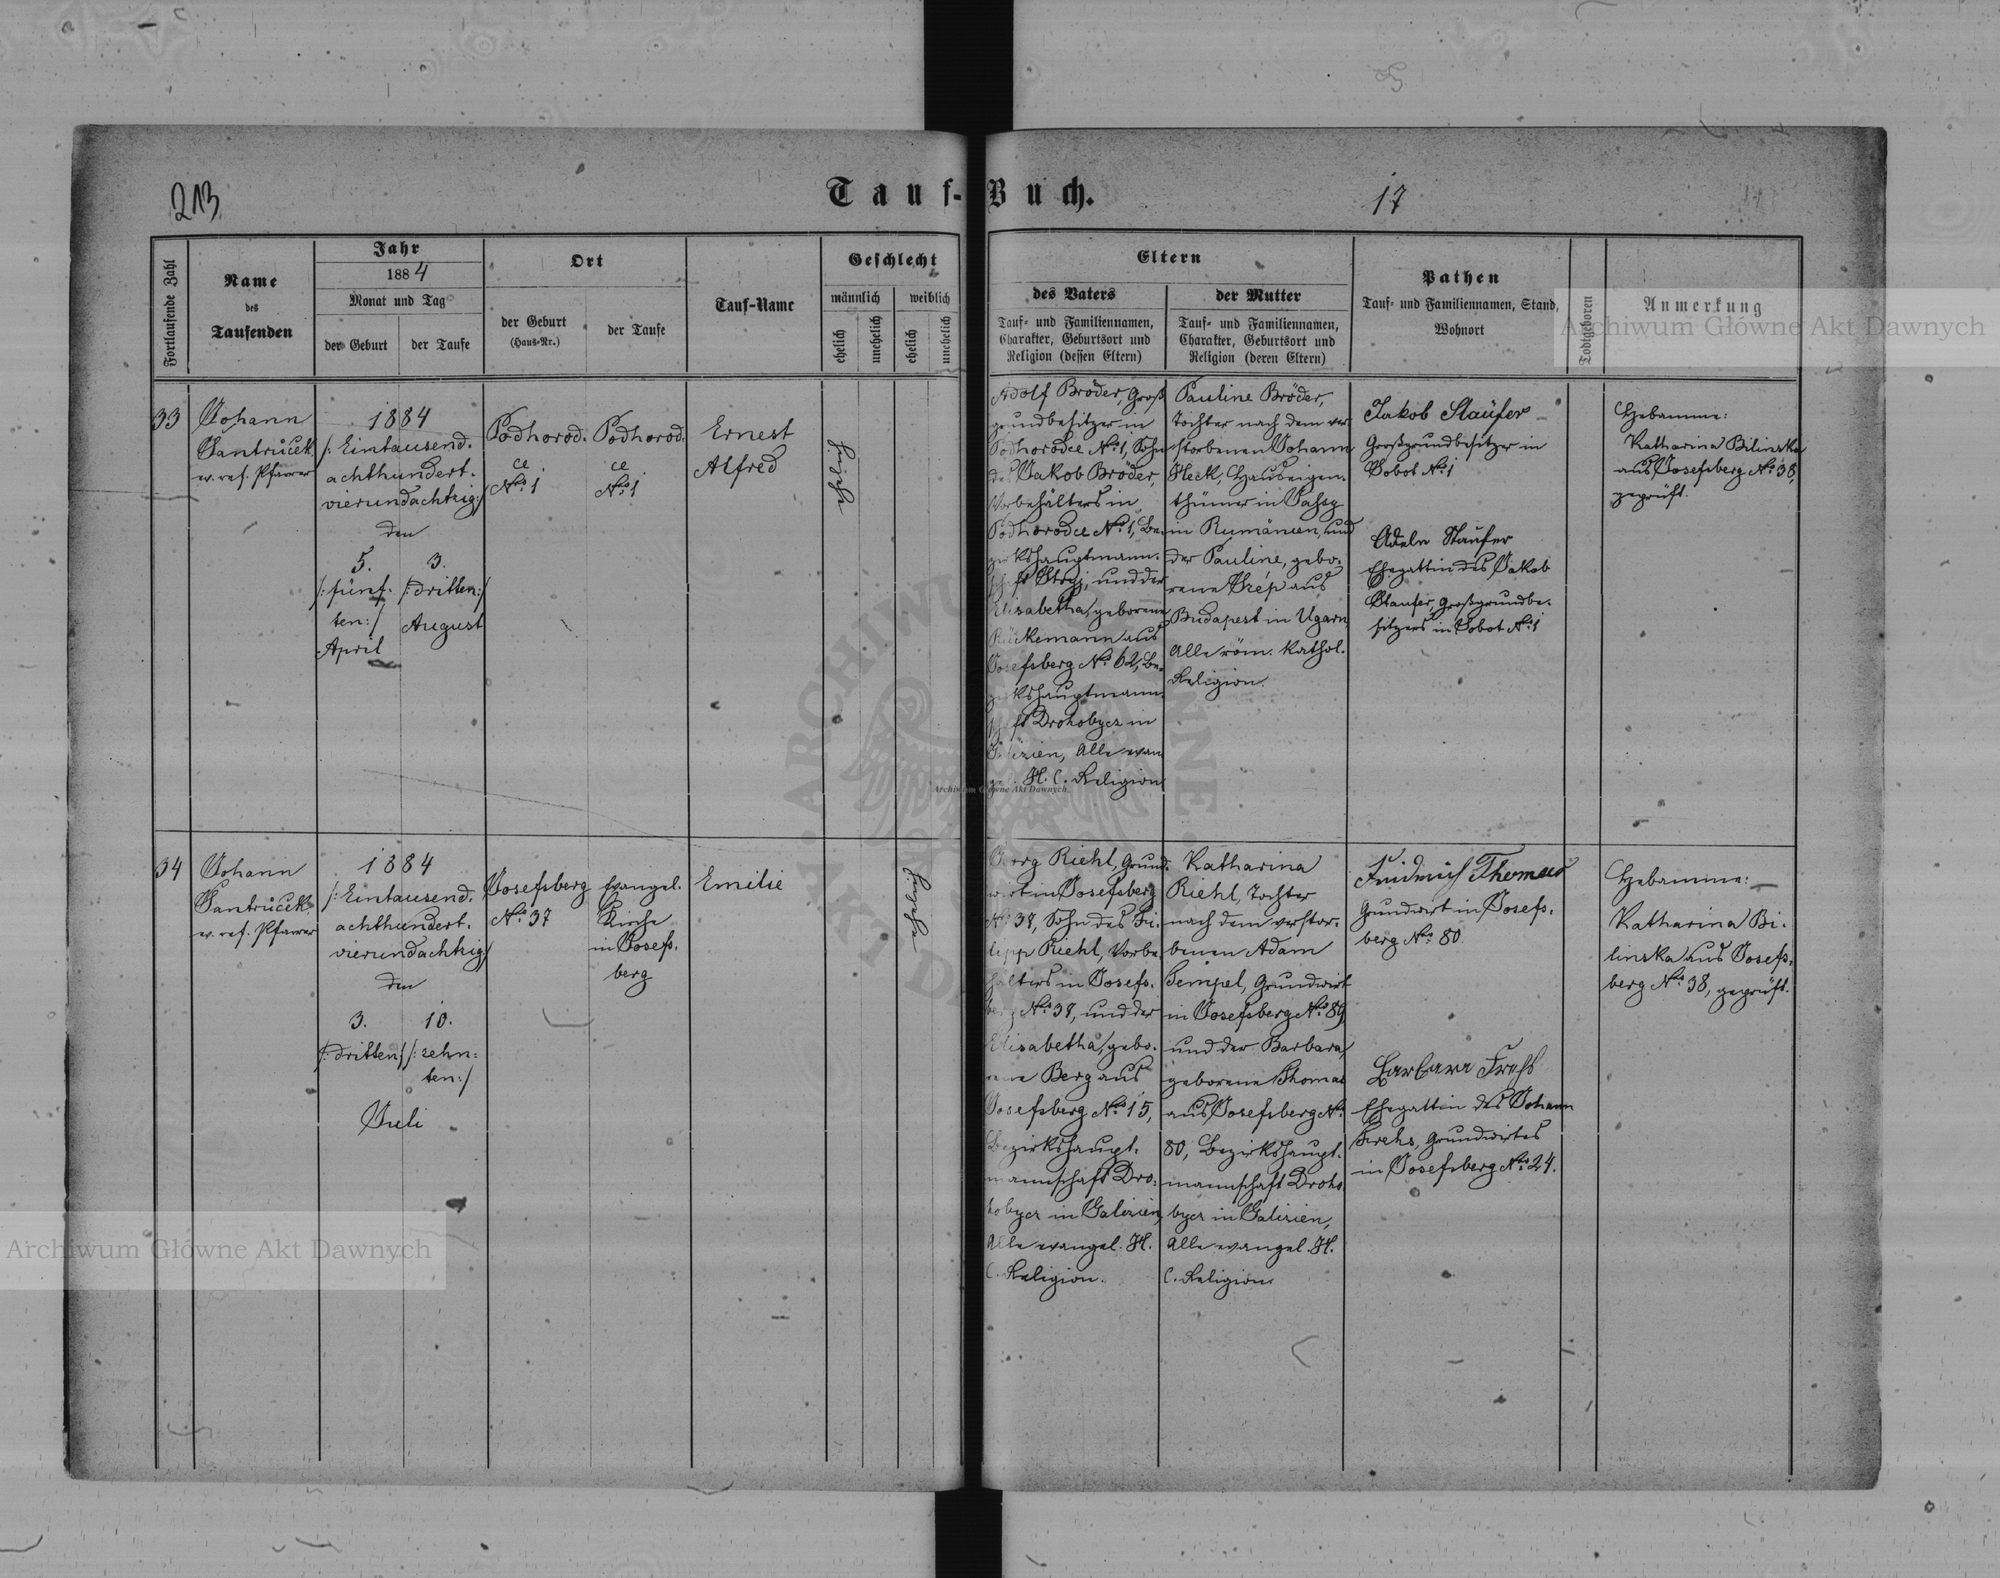 213
Tauf-Buch.
17
Fortlaufende Zahl
Name
des
Taufenden
Jahr
1884
Monat und Tag
der Geburt
der Taufe
Ort
der Geburt
(Haus-Nr.)
der Taufe
Tauf-Name
Geschlecht
männlich
weiblich
ehelich
unehelich
ehelich
unehelich
Eltern
des Vaters
Tauf- und Familiennamen,
Charakter, Geburtsort und
Religion (dessen Eltern)
der Mutter
Tauf- und Familiennamen,
Charakter, Geburtsort und
Religion (deren Eltern)
Pathen
Tauf- und Familiennamen, Stand,
Wohnort
Todtgeboren
Anmerkung
33
Johann
Jantrůcek
ev. ref. Pfarrer
1884
/: Eintausend.
achthundert.
vierundachtzig:/
den
5.
/: fünf.
ten:/
April
3.
/: dritten:/
August
Podhorod.
ce
No. 1
Podhorod.
ce
No. 1
Ernest
Alfred
ehelich
Adolf Bröder, Groß
grundbesitzer in
Podhorodce No. 1, Sohn
des Jakob Bröder,
Vorbehälters in
Podhorodce No. 1, Be-
zirkshauptmann-
schaft Stryj, und der
Elisabetha, geborene
aus
Josefsberg No. 62, Be-
zirkshauptmann-
schaft Drohobycz in
Galizien, Alle evan
gel. H. C. Religion
Pauline Bröder,
Tochter nach dem ver
storbenen Johann
Heck, Hauseigen-
thümer in
in Rumänien, und
der Pauline, gebo-
rene aus
Budapest in Ugarn
Alle röm. kathol.
Religion.
Jakob Staüfer
Großgrundbesitzer in
Sobot No. 1
Adeln Staufer
Ehegattin des Jakob
Staufer, Großgrundbe-
sitzers in Sobot No. 1
Hebamme:
Katharina Bilinska
aus Josefsberg No. 38,
geprüft.
34
Johann
Jantrůcek
ev. ref. Pfarrer
1884
/: Eintausend.
achthundert.
vierundachtzig:/
den
3.
/: dritten:/
10.
/: zehn:
ten:/
Juli
Josefsberg
No. 37
Evangel.
Kirche
in Josefs.
berg
Emilie
ehelich
Georg Riehl, Grund-
wirt in Josefsberg
No. 37, Sohn des Fi-
lipp Riehl, Vorbe
hälters in Josefs-
berg No. 37, und der
Elisabetha, gebo-
rene Berg aus
Josefsberg No. 15,
Bezirkshaupt-
mannschaft Dro-
hobycz in Galizien
Alle evangel. H.
C. Religion.
Katharina
Riehl, Tochter
nach dem verstor-
benen Adam
Gimpel, Grundwirt
in Josefsberg No. 89
und der Barbara,
geborene Thomas
aus Josefsberg No.
80, Bezirkshaupt-
mannschaft Droho
bycz in Galizien,
Alle evangel. H.
C. Religion.
Friedrich Thomas
Grundwirt in Josefs-
berg No. 80.
Barbara Frehs
Ehegattin des Johann
Frehs, Grundwirtes
in Josefsberg No. 24.
Hebamme:
Katharina Bi-
linska aus Josefs-
berg No. 38, geprüft.
Archiwum Główne Akt Dawnych
Archiwum Główne Akt Dawnych
Archiwum Główne Akt Dawnych